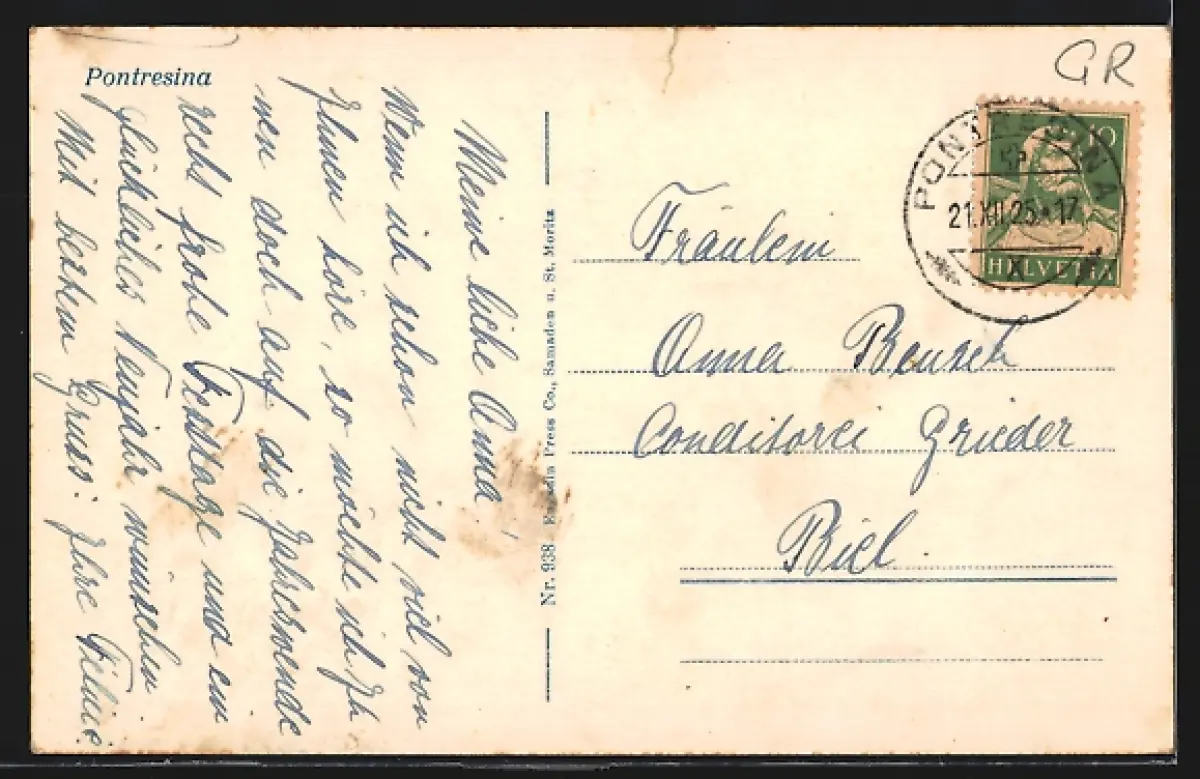 Pontresina
Meine liebe Anna!
Wenn ich schon nicht viel von
Ihnen höre, so möchte ich Ih
nen doch auf die Jahreswende
recht frohe Festtage und ein
glückliches Neujahr wünschen
Mit herzem Gruss: Ihre
Nr. 938 Press Co., Samaden u. St. Moritz
GR
PONTRESINA
21.XII.25 17
X
10
HELVETIA
Fräulein
Anna Beutsch
Conditorei Grieder
Biel